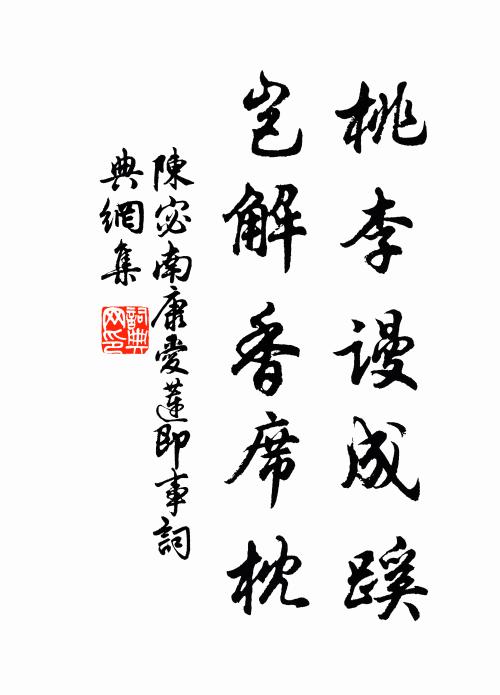 桃李謾成蹊
豈解香席枕
陳宓南康愛蓮即事詞
典網集
詞典
网印